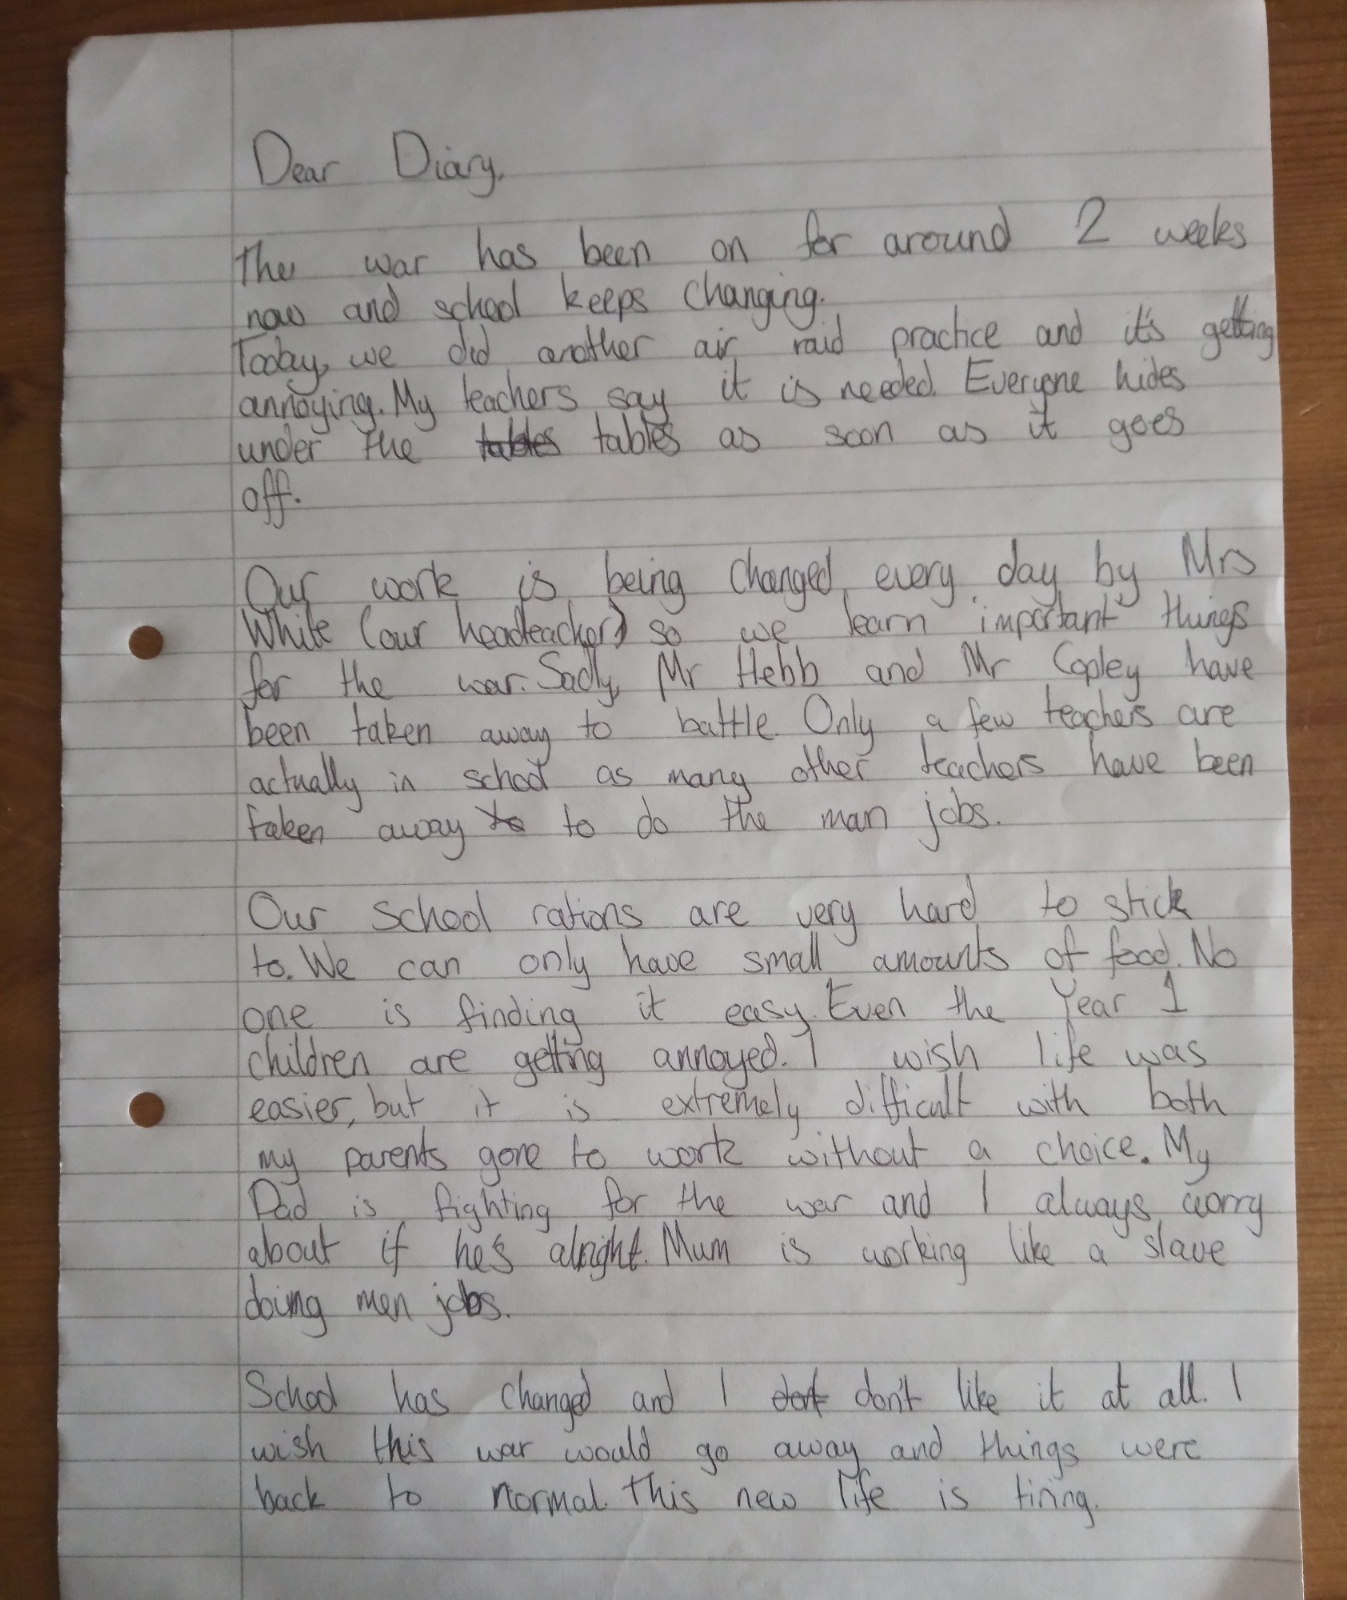 Dear Diary,
The war has been on for around 2 weeks
now and school keeps changing.
Today, we did another air raid practice and it's getting
annoying. My teachers say it is needed. Everyone hides
under the tables tables as soon as it goes
off.
Our work is being changed every day by Mrs
White (our headteacher) so we learn important things
for the war. Sadly, Mr Hebb and Mr Copley have
been taken away to battle. Only a few teachers are
actually in school as many other teachers have been
taken away to to do the man jobs.
Our school rations are very hard to stick
to. We can only have small amounts of food. No
one is finding it easy. Even the Year 1
children are getting annoyed. I wish life was
easier, but it is extremely difficult with both
my parents gone to work without a choice. My
Dad is fighting for the war and I always worry
about if he's alright. Mum is working like a slave
doing men jobs.
School has changed and I dont don't like it at all. I
wish this war would go away and things were
back to normal. This new life is tiring.